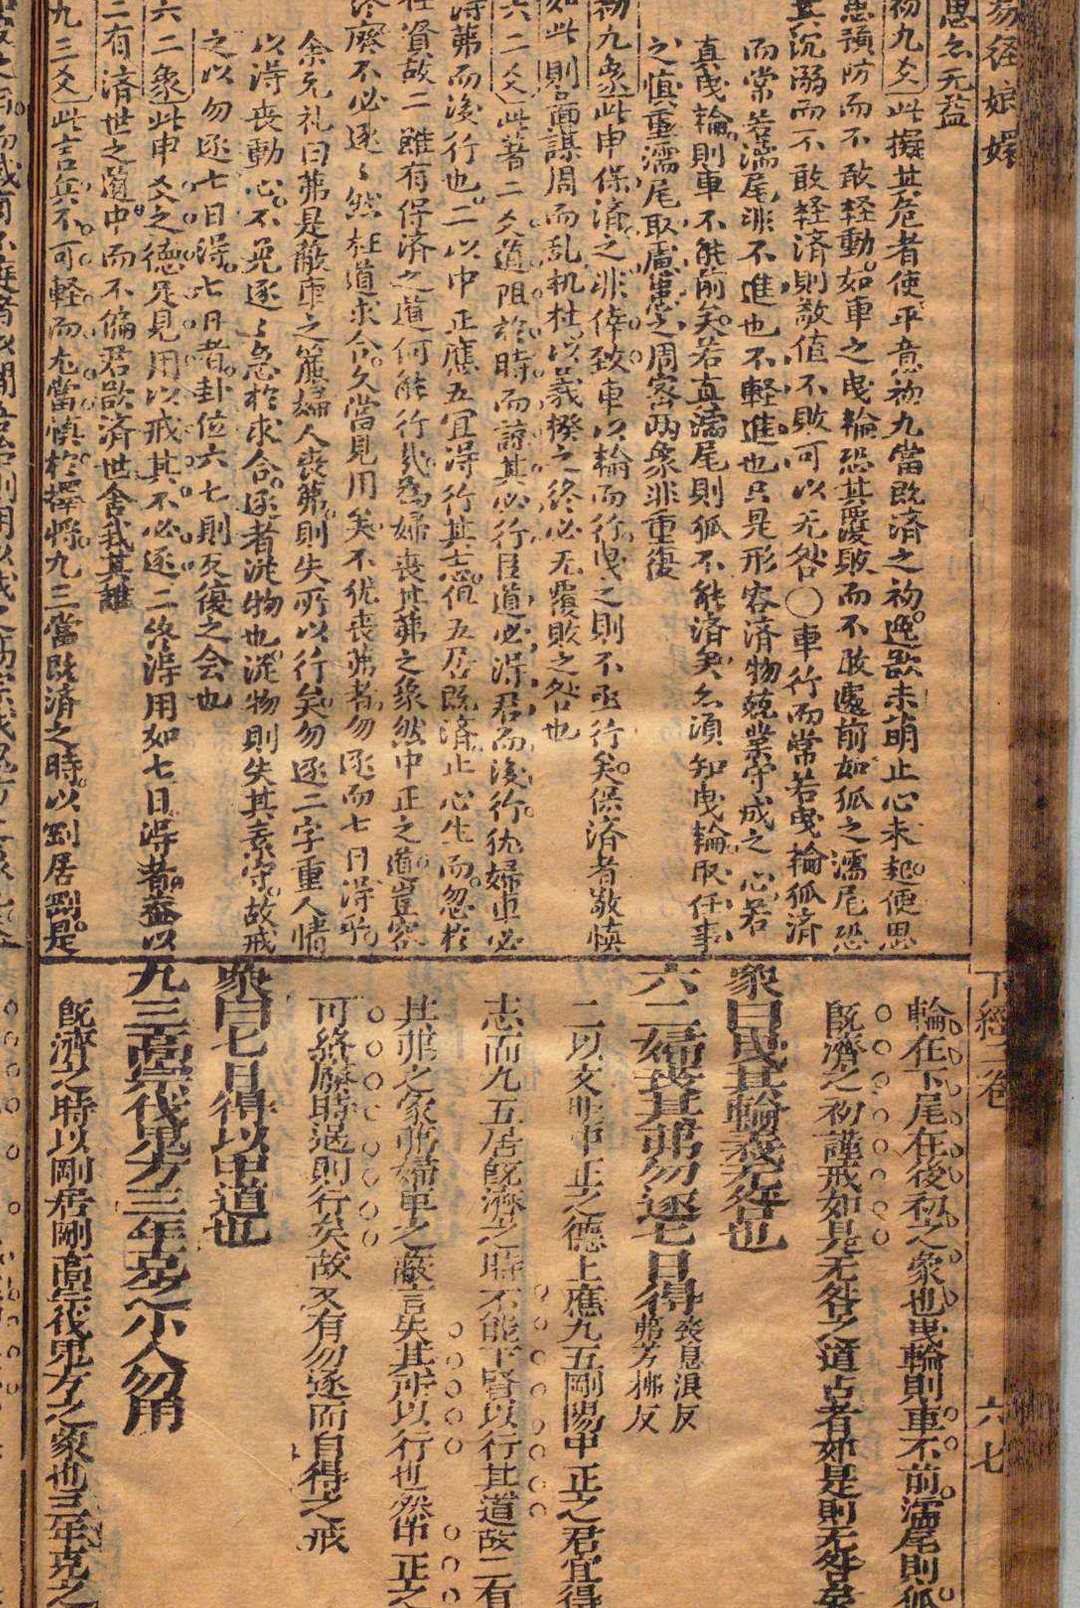 易经娘嬛
思亦无益
初九爻此擬其危者使平意初九當既済之初逸欲未萌止心未起便思
患預防而不敢軽動如車之曳輪恐其覆敗而不敢遽前如狐之濡尾恐
其沉溺而不敢軽済則敬值不敗可以无咎〇車行而常若曳輪狐済
而常若濡尾非不進也不軽進也只是形容済物兢業守成之心若
真曳輪則車不能前矣若真濡尾則狐不能済矣亦須知曳輪取任事
之慎重濡尾取慮患之周密两象非重復
初九象此申保済之非倖致車以輪而行曳之則不亟行矣保済者敬慎
如此則啚面謀周而乱机杜以義揆之終必无覆敗之咎也
六二爻此著二爻道阻於時而諒其必行臣道必得君而後行犹婦車必
得茀而後行也二以中正應五宜得行其志但五居既済止心生而忽於
任賢故二雖有得済之道何能行哉為婦丧其茀之象然中正之道豈容
終廃不必逐逐然枉道求合久當見用矣不犹丧茀者勿逐而七日得乎
余允礼曰茀是敵車之簾婦人丧茀則失所以行矣勿逐二字重人情
以得丧動心不免逐逐急於求合逐者從物也從物則失其素守故戒
之以勿逐七日得七日者卦位六七則反復之会也
六二象此申爻之德足見用以戒其不必逐二終得用如七日得者葢以
二有済世之道中而不偏君欲済世舍我其誰
九三爻此言兵不可軽而尤當慎於擇將九三當既済之時以剛居剛是
下經二卷 六七
輪在下尾在後初之象也曳輪則車不前濡尾則狐
既濟之初謹戒如是无咎之道占者如是則无咎矣
象曰曳其輪義无咎也
六二婦丧其茀勿逐七日得丧息浪反茀芳拂反
二以文明中正之德上應九五剛陽中正之君宜得
志而九五居既濟之時不能下賢以行其道故二有
其茀之象茀婦車之蔽言失其所以行也然中正之
可終廢時過則行矣故又有勿逐而自得之戒
象曰七日得以中道也
九三高宗伐鬼方三年克之小人勿用
既濟之時以剛居剛高宗伐鬼方之象也三年克之